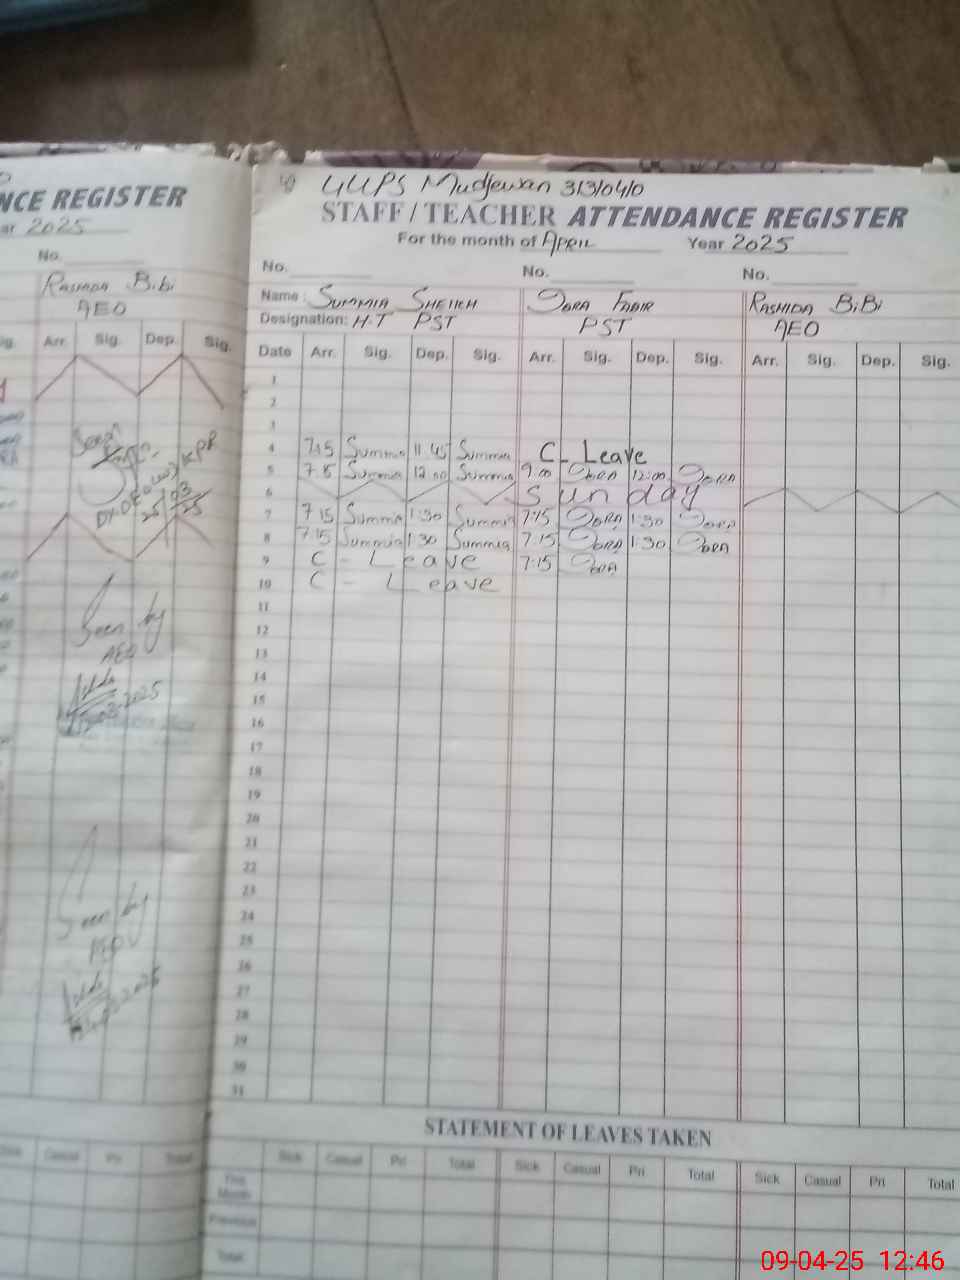 NCE REGISTER
ar 2025
No.
RASHIDA BiBi
AEO
Arr. Sig. Dep. Sig.
25/03/25
Seen by
AEO
Seen by
GGPS Mudjewan 313/04/0
STAFF / TEACHER ATTENDANCE REGISTER
For the month of APRIL Year 2025
No. No. No.
Name : SUMMIA SHEIKH RASHIDA BiBi
Designation: H.T PST PST AEO
Date Arr. Sig. Dep. Sig. Arr. Sig. Dep. Sig. Arr. Sig. Dep. Sig.
1
2
3
4 7:15 Summia 11:45 Summia C - Leave
5 7:15 Summia 12:00 Summia 9:00 12:00
6 Sunday
7 7:15 Summia 1:30 Summia 7:15 1:30
8 7:15 Summia 1:30 Summia 7:15 1:30
9 C - Leave 7:15
10 C - Leave
11
12
13
14
15
16
17
18
19
20
21
22
23
24
25
26
27
28
29
30
31
STATEMENT OF LEAVES TAKEN
Casual Pri Total Sick Casual Pri Total Sick Casual Pri Total Sick Casual Pri Total
This Month
Previous
Total
09-04-25 12:46